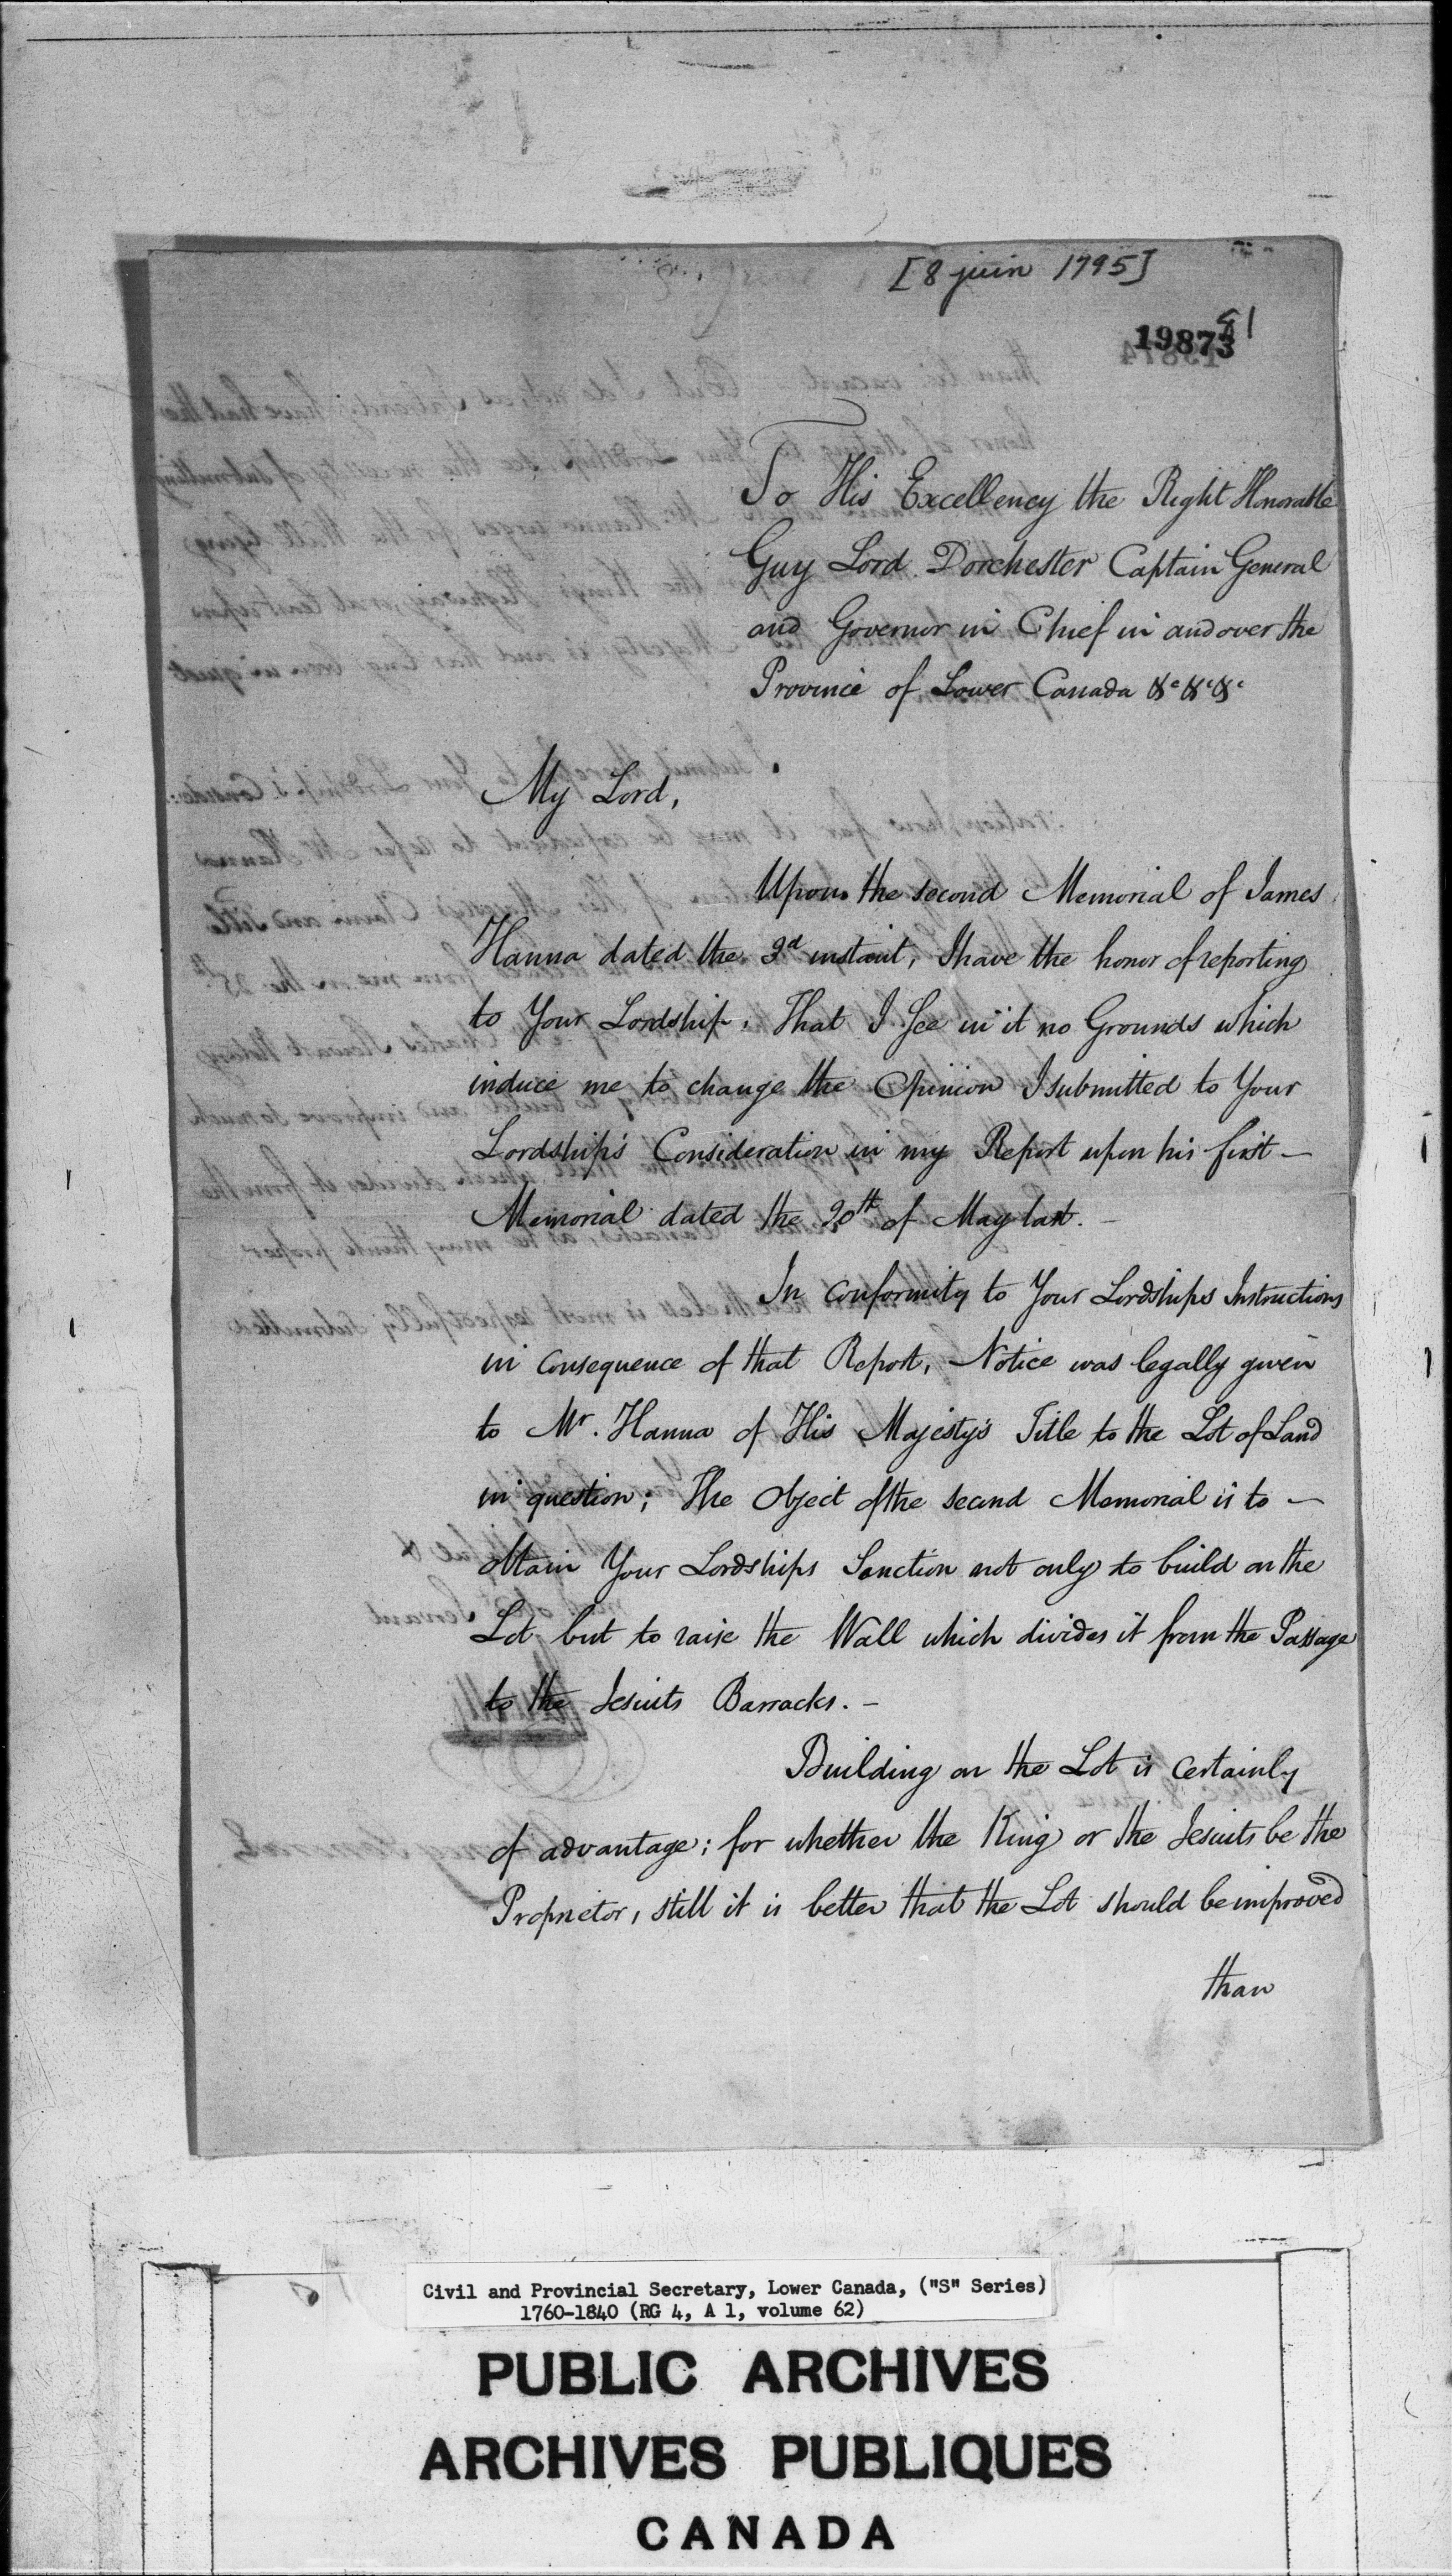 [8 juin 1795]
19873
51
To His Excellency the Right Honorable
Guy Lord Dorchester Captain General
and Governor in Chief in and over the
Province of Lower Canada &c &c &c
My Lord,
Upon the second Memorial of James
Hanna dated the 3d instant, I have the honor of reporting
to Your Lordship, That I See in it no Grounds which
induce me to change the Opinion I submitted to Your
Lordship's Consideration in my Report upon his first —
Memorial dated the 20th of May last. —
In conformity to Your Lordships Instructions
in consequence of that Report, Notice was legally given
to Mr. Hanna of His Majesty's Title to the Lot of Land
in question; The Object of the second Memorial is to —
obtain Your Lordships Sanction not only to build on the
Lot but to raise the Wall which divides it from the Passage
to the Jesuits Barracks. —
Building on the Lot is certainly
of advantage; for whether the King or the Jesuits be the
Proprietor, still it is better that the Lot should be improved
than
Civil and Provincial Secretary, Lower Canada, ("S" Series)
1760-1840 (RG 4, A 1, volume 62)
PUBLIC ARCHIVES
ARCHIVES PUBLIQUES
CANADA